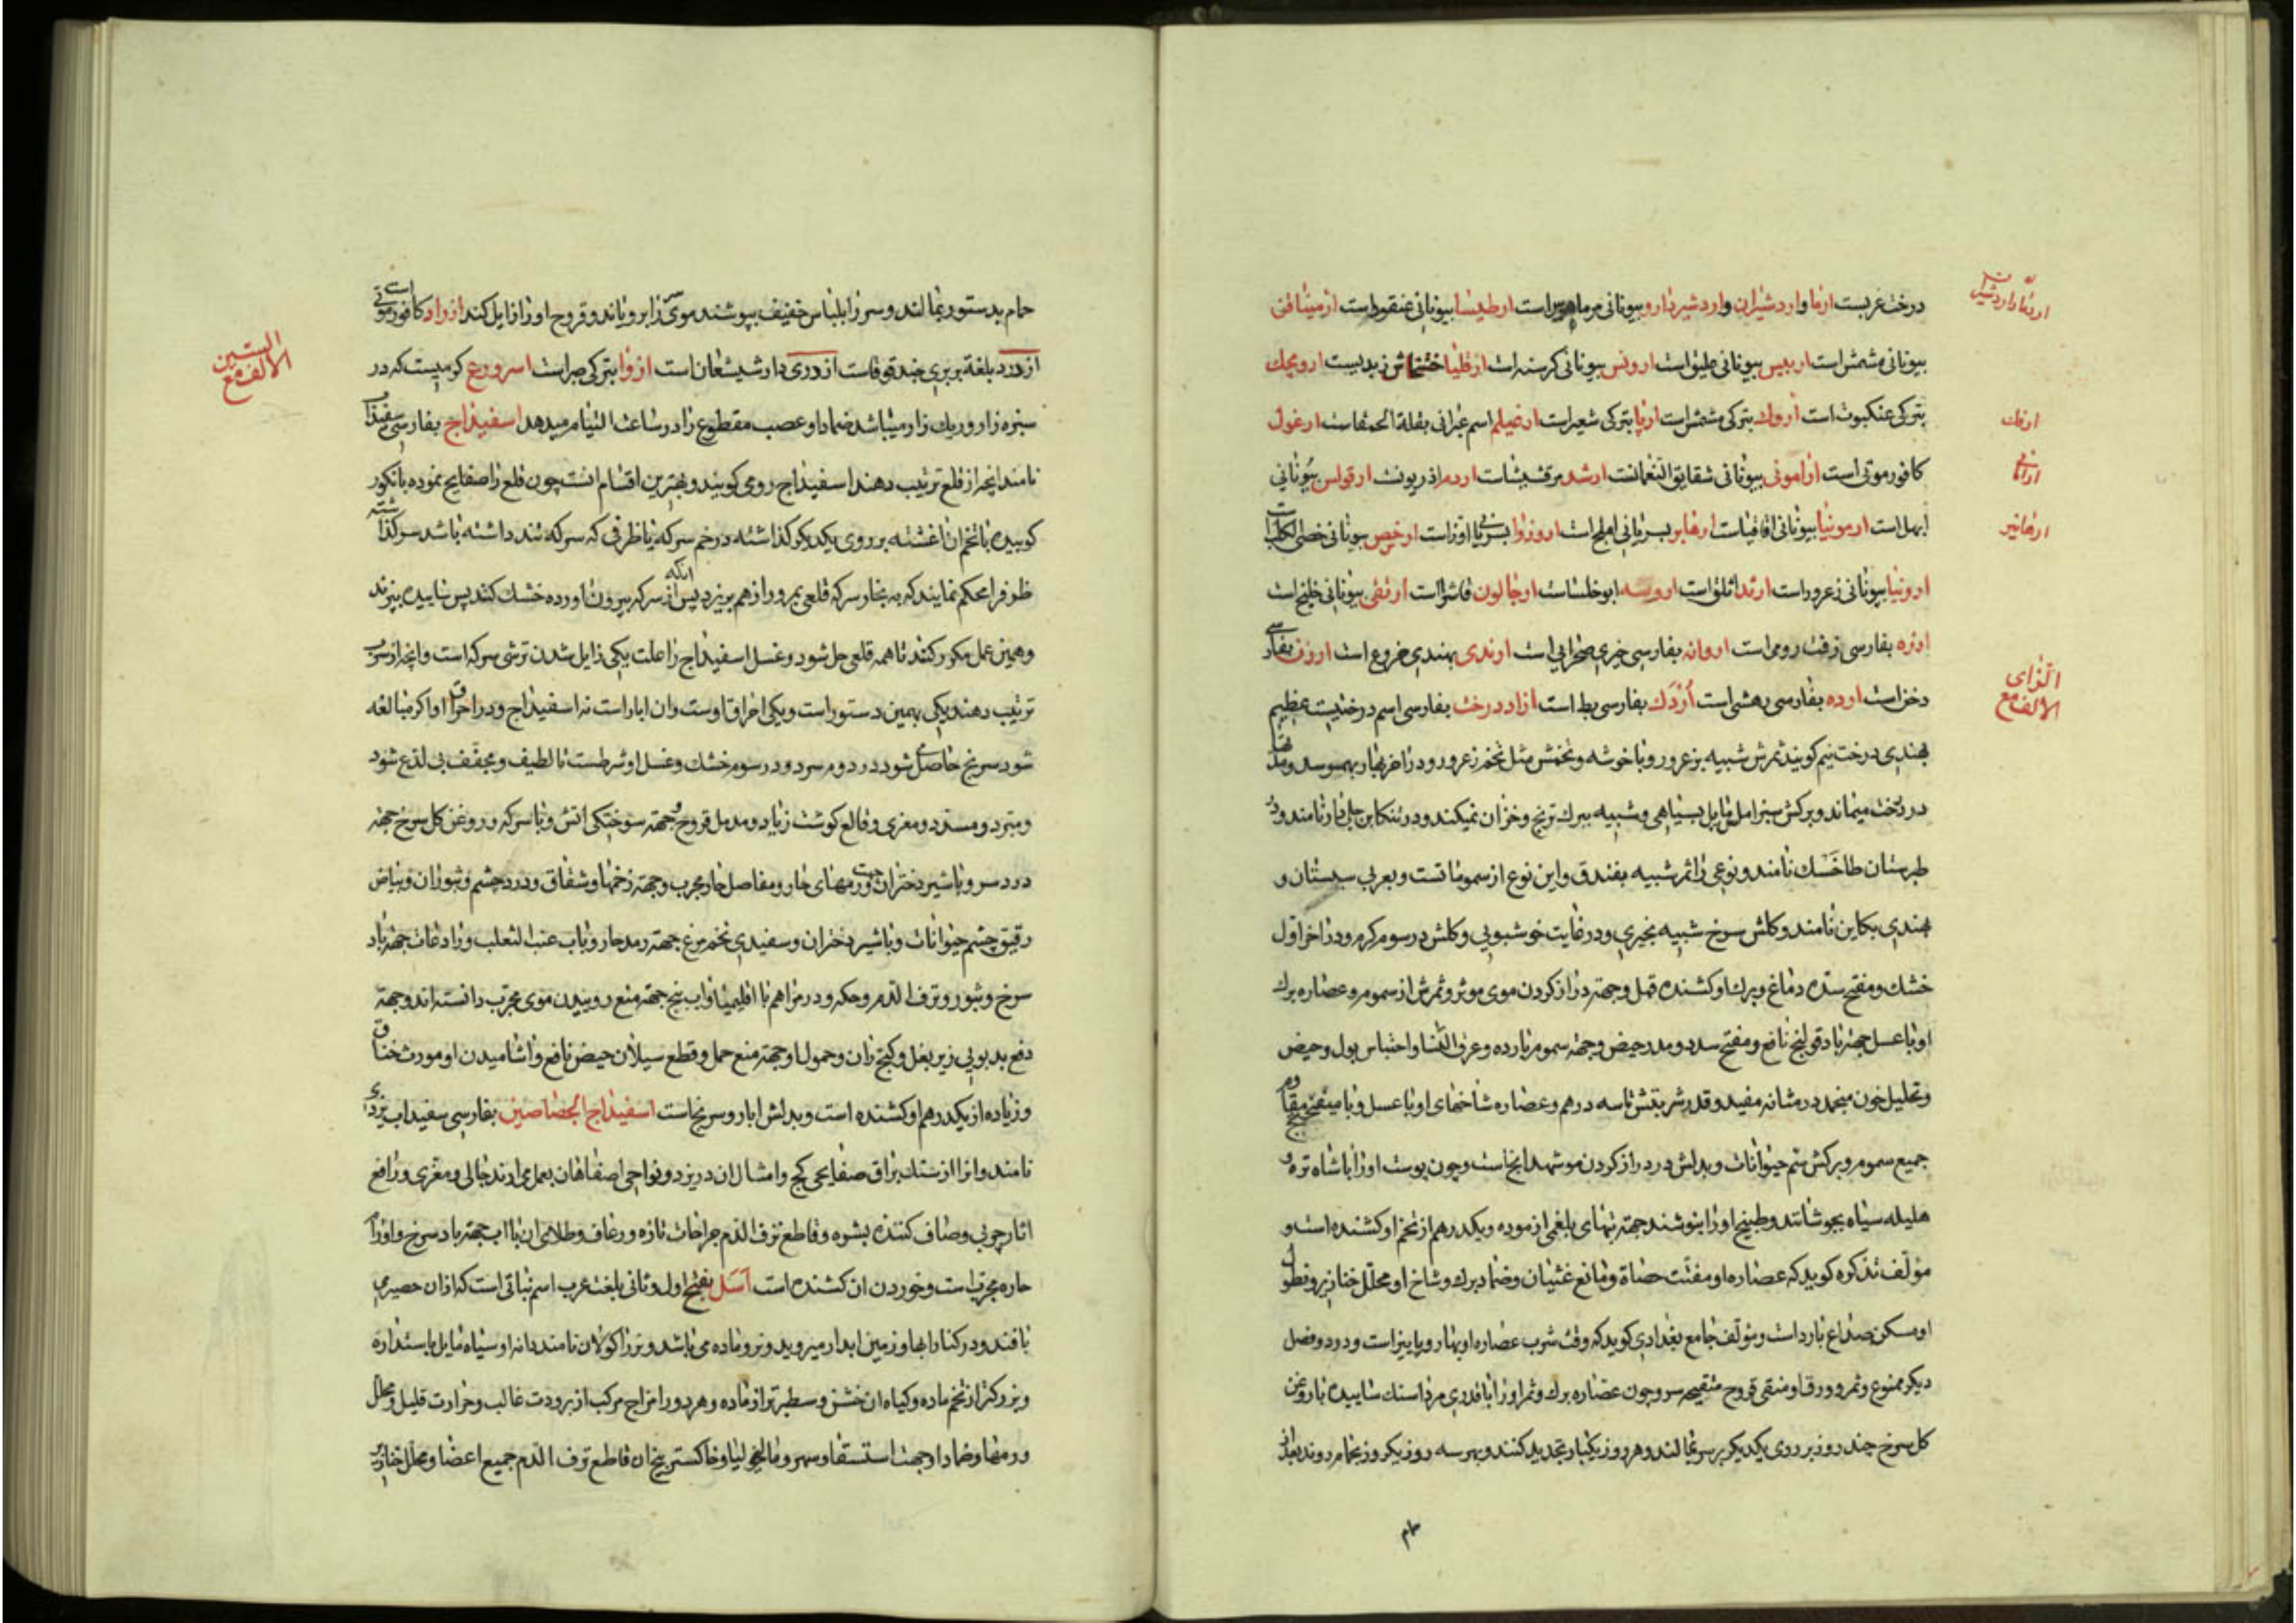 درخت غربست ارما و اردشیران و اردشیردارو بیونانی مرماهوس است ارطیسا بیونانی عنقود است ارمینا فن
بیونانی مشمش است اربیس بیونانی علیق است ارونس بیونانی کرسنه است ارقلیا خشخاش زبدیست ارومجک
بترکی عنکبوت است اروک بترکی مشمش است ارپا بترکی شعیر است ارضیلم اسم عبرانی بقلة الحمقاست ارغول
کافور موتی است ارامونی بیونانی شقایق النعمانست ارشد مرقشیشات اردم اذریونست ارقواس بیونانی
ابهل است ارمونیا بیونانی اقاقیاست ارهابر بسریانی املج است اروزوا بسریانی ارز است ارخص بیونانی خصی الکلب است
ارونیا بیونانی زعرور است ارثد اثلق است اروسه ابوخلساست ارجالون فاشرا است ارثقی بیونانی خلنج است
ارزه بفارسی زفت رومی است اروانه بفارسی خیری صحرایی است ارندی بهندی خروع است ارزن بفارسی
دخن است ارده بفارسی رهشی است اُرْدَک بفارسی بط است ازاد درخت بفارسی اسم درختیست عظیم
بهندی درخت نیم کویند ثمرش شبیه بزعرور و با خوشه و تخمش مثل تخم زعرور و در اخر بهار بهمرسد و مدتها
در درخت میماند و برکش سبز املس مایل بسیاهی و شبیه ببرک ترنج و خزان نمیکند و در تنکابن جلی دار نامند و در
طبرستان طاخَسک نامند و نوعی را ثمر شبیه بفندق و این نوع از سموم قتاله است و بعربی سبستان و
هندی بکاین نامند و کلش سرخ شبیه بخیری و در غایت خوشبویی و کلش در سوم کرم و در اخر اول
خشک و مفتح سده دماغ و برک او کشنده قمل و جهته دراز کردن موی موثر و ثمرش از سموم و عصاره برک
او با عسل جهته باد قولنج نافع و مفتح سدد و مدر حیض و جهته سموم بارده و عرق النسا و احتباس بول و حیض
و تحلیل خون منجمد در مثانه مفید و قدر شربتش تا سه درهم و عصاره شاخهای او با عسل و با میفختج مقاوم
جمیع سموم و برکش سم حیوانات و بدلش در دراز کردن مو شهدانج است و چون پوست او را با شاه تره و
هلیله سیاه بجوشانند و طبیخ او را بنوشند جهته تبهای بلغمی ازموده و یکدرهم از تخم او کشنده است و
مؤلف تذکره کوید که عصاره او مفتت حصاة و مانع غثیان و ضماد برک و شاخ او محلل خنازیر و نطول
او مسکن صداع بارد است و مؤلف جامع بغدادی کوید که وقت شرب عصاره او بهار و پاییز است و در دو فصل
دیکر ممنوع و ثمر و ورق او منقی قروح متقیحه سر و چون عصاره برک و ثمر او را با قدری مرداسنک ساییده با روغن
کل سرخ چند روز بر روی یکدیکر بر سر بمالند و هر روز یکبار تجدید کنند و بهر سه روز یکروز بحمام روند بعد از
ارنماو اردشیران
ارمک
ارانا
ارماتیر
الالف مع الزای
حمام بدستور بمالند و سر را بلباس خفیف بپوشند موی سر را برویاند و قروح او را زایل کند ازواد کافور موتی است
ازدرد بلغة بربری حندقوقاست ازدری دارشیشعان است ازوا بترکی صبر است اسرورع کرمیست که در
سبزه زار و ریک زار میباشد ضماد او عصب مقطوع را در ساعت التیام میدهد اسفیداج بفارسی سفیداب
نامند انچه از قلع ترتیب دهند اسفیداج رومی کویند و بهترین اقسام انست چون قلع را صفایح نموده با انکور
کوبیده با تخم ان اغشته بر روی یکدیکر کذاشته در خم سرکه یا ظرفی که سرکه تند داشته باشد سر کذاشته
ظرف را محکم نمایند که به بخار سرکه قلعی بمرور از هم بریزد پس از انکه سرکه بیرون اورده خشک کنند پس ساییده ببزند
و همین عمل مکرر کنند تا همه قلعی حل شود و غسل اسفیداج را علت یکی زایل شدن ترشی سرکه است و انچه از سرب
ترتیب دهند یکی بهمین دستور است و یکی احراق اوست و ان ابار است نه اسفیداج و در احراق او اکر مبالغه
شود سرنج حاصل شود در دوم سرد و در سوم خشک و غسل او شرطست تا لطیف و مجفف بی لذع شود
و مبرد و مسدد و مغری و قالع کوشت زیاد و مدمل قروح و جهته سوختکی اتش و با سرکه و روغن کل سرخ جهته
درد سر و با شیر دختران جهت ورمهای حار و مفاصل حار مجرب و جهته زخمها و شقاق و درد چشم و بثور ان و بیاض
رقیق چشم حیوانات و با شیر دختران و سفیدی تخم مرغ جهته رمد حار و با اب عنب الثعلب و رادعات جهته باد
سرخ و بثور و نزف الدم و حکه و در مراهم با اقلیمیا و اب بنج جهته منع روییدن موی مجرب دانسته اند و جهته
دفع بدبویی زیر بغل و کنج ران و حمول او جهته منع حمل و قطع سیلان حیض نافع و اشامیدن او مورث خناق
و زیاده از یکدرهم او کشنده است و بدلش ابار و سرنج است اسفیداج الجصاصین بفارسی سفیداب یزدی
نامند و انرا از سنک براق صفایحی کج و امثال ان در یزد و نواحی اصفاهان بعمل می اورند جالی و مغری و رافع
اثار چوبی و صاف کننده بشره و قاطع نزف الدم جراحات تازه و رعاف و طلای ان با اب جهته باد سرخ و اورام
حاره مجرب است و خوردن ان کشنده است اَسَل بفتح اول و ثانی بلغت عرب اسم نباتی است که ازان حصیر می
بافند و در کنار ابها و زمین ابدار میروید و نر و ماده می باشد و نر را کولان نامند دانه او سیاه مایل باستداره
و بزرکتر از تخم ماده و کیاه ان خشن و سطبرتر از ماده و هر دو را مزاج مرکب از برودت غالب و حرارت قلیل و محلل
ورمها و ضماد او جهت استسقا و سهر و مالیخولیا و خاکستر بیخ ان قاطع نزف الدم جمیع اعضا و محلل خنازیر
الالف مع السین